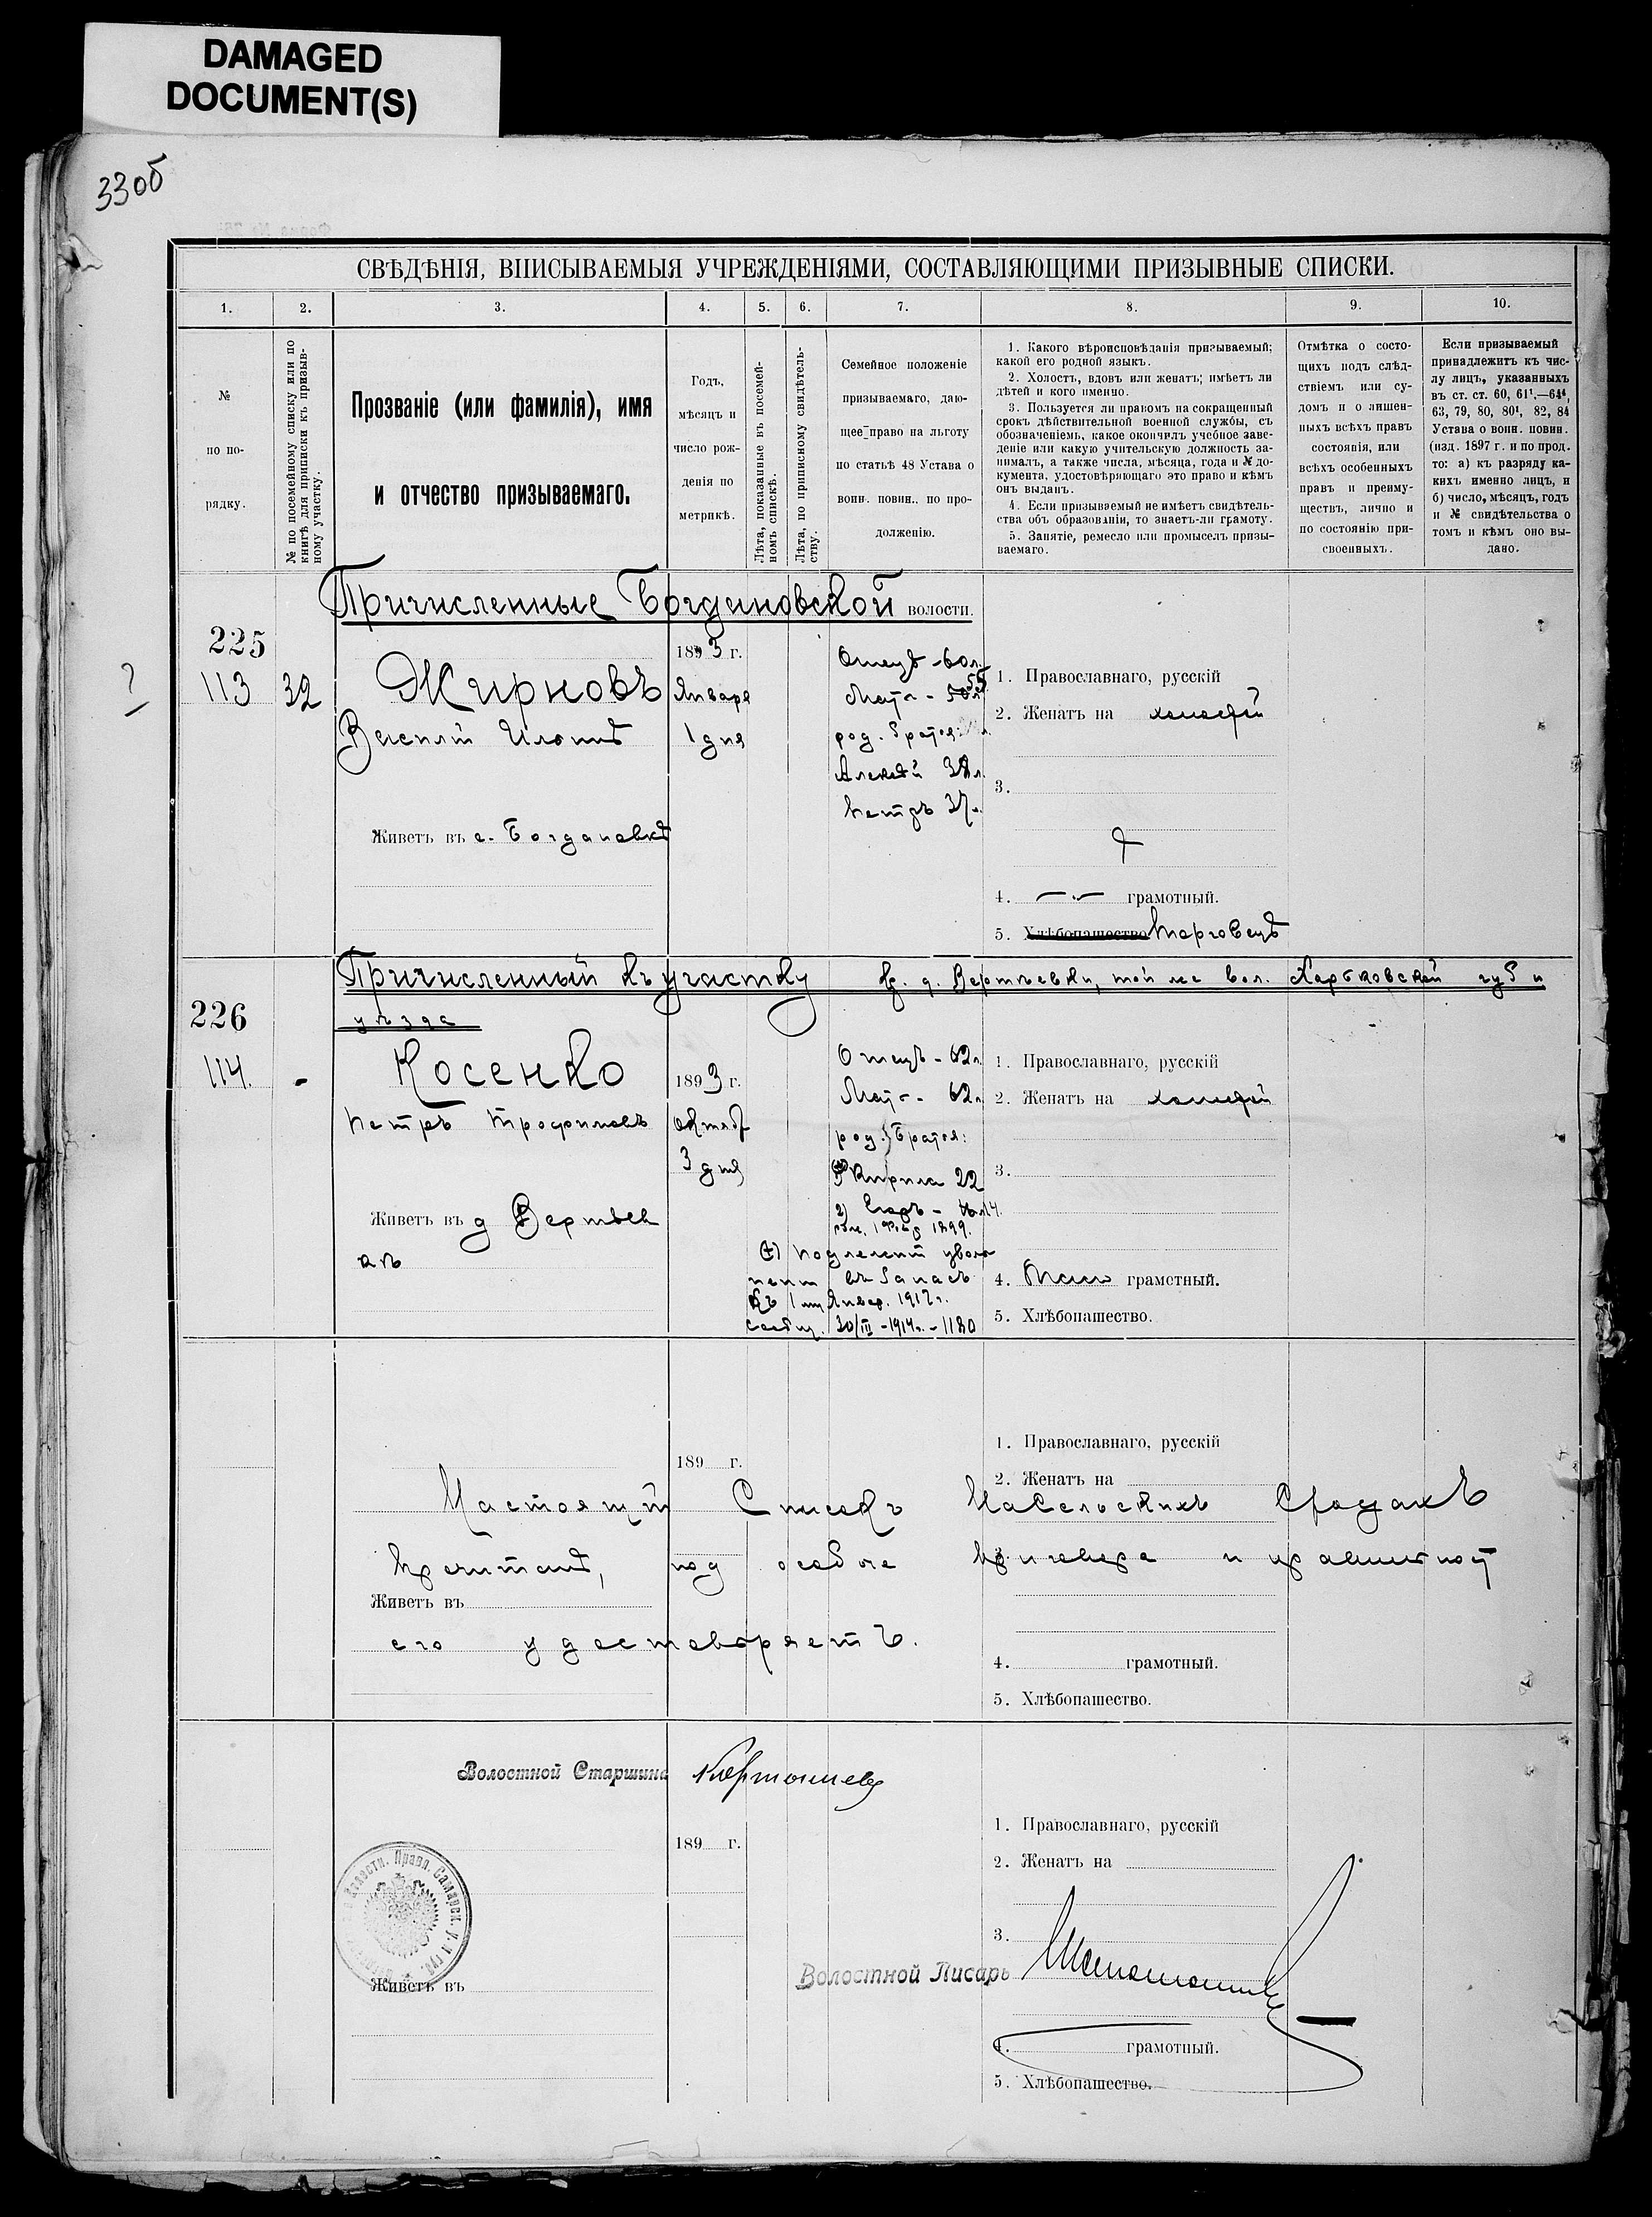 DAMAGED
DOCUMENT(S)
33об
СВѢДѢНІЯ, ВПИСЫВАЕМЫЯ УЧРЕЖДЕНІЯМИ, СОСТАВЛЯЮЩИМИ ПРИЗЫВНЫЕ СПИСКИ.
1. 2. 3. 4. 5. 6. 7. 8. 9. 10.
№
по по-
рядку.
№ по посемейному списку или по
книгѣ для приписки къ призыв-
ному участку.
Прозваніе (или фамилія), имя
и отчество призываемаго.
Годъ,
мѣсяцъ и
число рож-
денія по
метрикѣ.
Лѣта, показанные въ посемей-
номъ спискѣ.
Лѣта, по приписному свидѣтель-
ству.
Семейное положеніе
призываемаго, даю-
щее право на льготу
по статьѣ 48 Устава о
воин. повин., по про-
долженію.
1. Какого вѣроисповѣданія призываемый;
какой его родной языкъ.
2. Холостъ, вдовъ или женатъ; имѣетъ ли
дѣтей и кого именно.
3. Пользуется ли правомъ на сокращенный
срокъ дѣйствительной военной службы, съ
обозначеніемъ, какое окончилъ учебное заве-
деніе или какую учительскую должность за-
нималъ, а также числа, мѣсяца, года и № до-
кумента, удостовѣряющаго это право и кѣмъ
онъ выданъ.
4. Если призываемый не имѣетъ свидѣтель-
ства объ образованіи, то знаетъ-ли грамоту.
5. Занятіе, ремесло или промыселъ призы-
ваемаго.
Отмѣтка о состо-
щихъ подъ слѣд-
ствіемъ или су-
домъ и о лишен-
ныхъ всѣхъ правъ
состоянія, или
всѣхъ особенныхъ
правъ и преиму-
ществъ, лично и
по состоянію при-
своенныхъ.
Если призываемый
принадлежитъ къ чис-
лу лицъ, указанныхъ
въ ст. ст. 60, 61¹.—64⁴,
63, 79, 80, 80¹, 82, 84
Устава о воин. повин.
(изд. 1897 г. и по прод.
то: а) къ разряду ка-
кихъ именно лицъ, и
б) число, мѣсяцъ, годъ
и № свидѣтельства о
томъ и кѣмъ оно вы-
дано.
Причисленные Богдановской волости.
225
113 32
?
Жирновъ
Василій
Живетъ въ с. Богдановкѣ
1893 г.
Января
1 дня
Отецъ - 60 л.
Мать - 55
род. братья:
Алексѣй
Петръ 37 л.
1. Православнаго, русскій
2. Женатъ на холостой
3.
4. грамотный.
5. Хлѣбопашество Торговецъ
Причисленный къ участку кр. д. Вертѣевки, той же вол. Харьковской губ и
уѣзда
226
114. -
Косенко
Петръ Трофимовъ
Живетъ въ д Вертѣев
кѣ
1893 г.
Октябр
3 дня
Отецъ - 62 л.
Мать - 62 л.
род. Братья:
Кирила 22
2) Егоръ - 14.
1899.
подлежит уволь
въ Запасъ
къ 1 му Январ. 1917 г.
сообщ. 30/III - 1914 г. - 1180
1. Православнаго, русскій
2. Женатъ на холостой
3.
4. Мало грамотный.
5. Хлѣбопашество.
189 г.
1. Православнаго, русскій
2. Женатъ на
Настоящій Списокъ На Сельскихъ Сходахъ
Прочитанъ,
Живетъ въ
его удостоверяетъ.
4. грамотный.
5. Хлѣбопашество.
Волостной Старшина
189 г.
Волостн. Правл. Самарск. у. и губ.
Живетъ въ
1. Православнаго, русскій
2. Женатъ на
3.
Волостной Писарь
4. грамотный.
5. Хлѣбопашество.